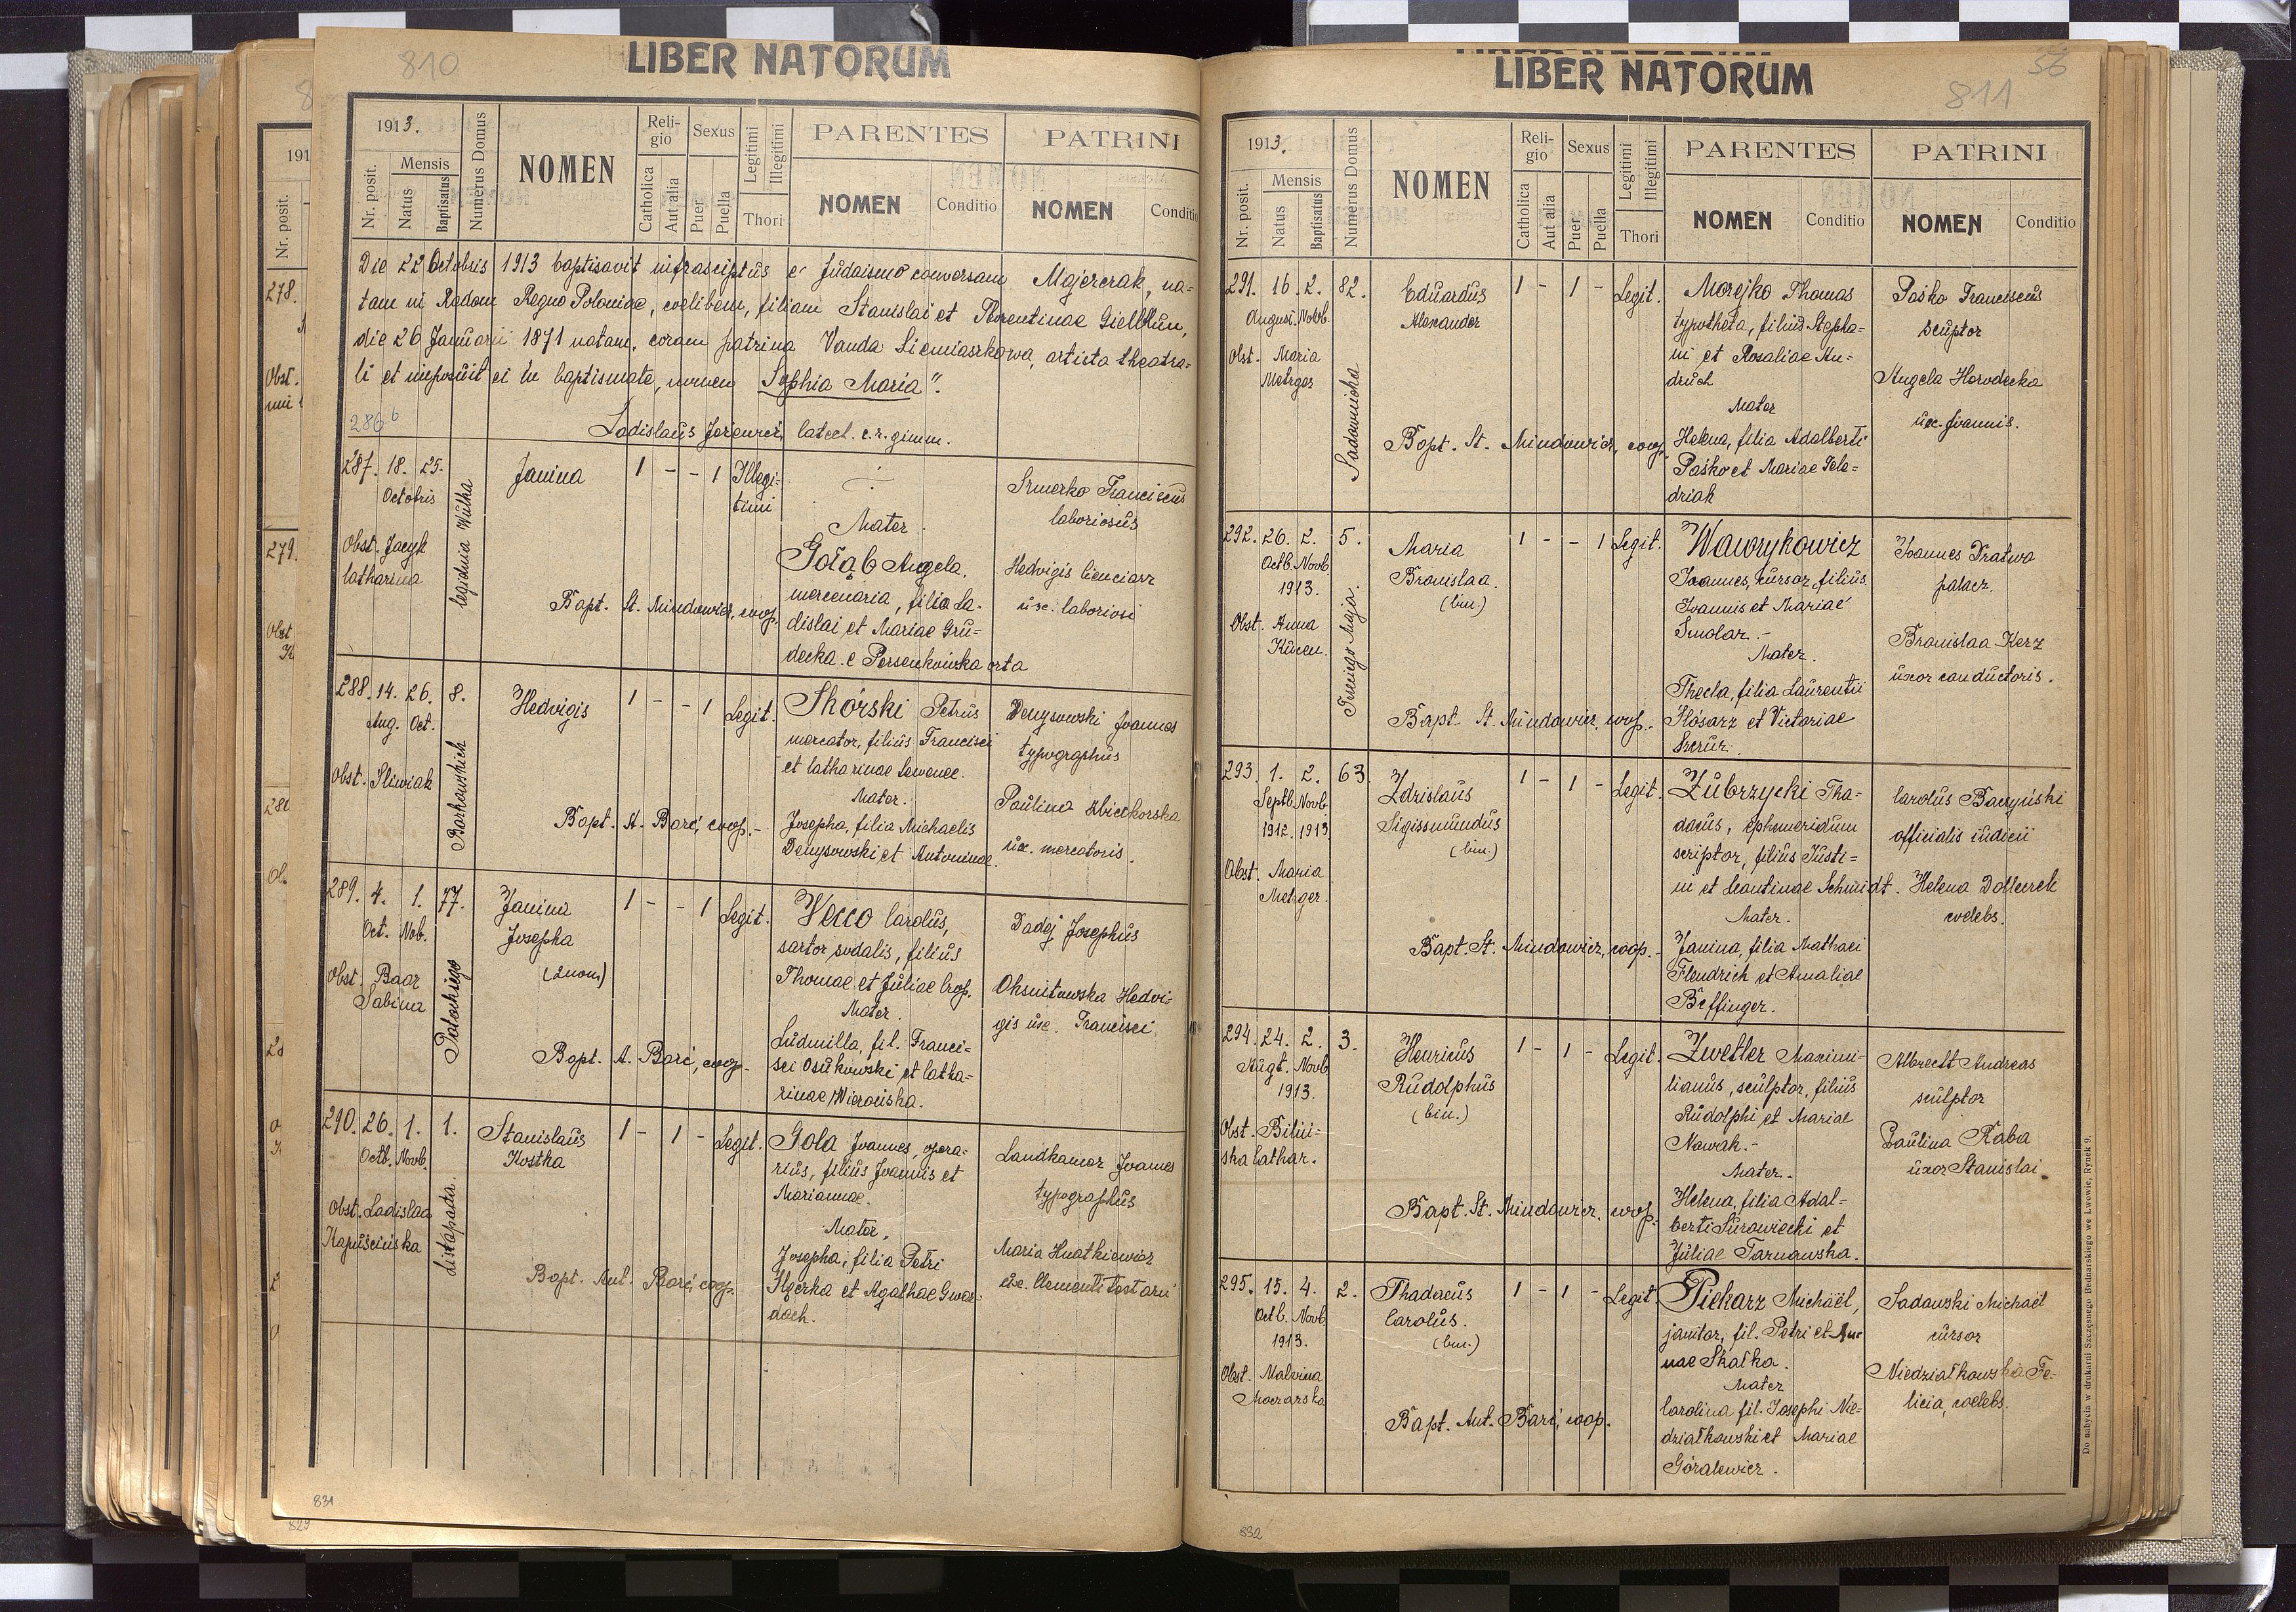 810
LIBER NATORUM
1913.
Nr. posit.
Mensis
Natus
Baptisatus
Numerus Domus
NOMEN
Reli-
gio
Catholica
Aut alia
Sexus
Puer
Puella
Legitimi
Illegitimi
Thori
PARENTES
NOMEN Conditio
PATRINI
NOMEN Conditio
Die 22 Octobris 1913 baptisavit infrascriptus e Judaismo conversam Majerczak, na-
tam in Radom Regno Poloniae, coelibem, filiam Stanislai et Florentinae
die 26 Januarii 1871 natam, coram patrina Vanda Siemaszkowa, artista theatra-
li et imposuit ei in baptismate, nomen "Sophia Maria".
286 b
Ladislaus catect. c. r. gimn.
287. 18. 25.
Octobris
Obst. Jacyk
Catharina
Janina
1 - - 1 Illegi-
timi
Mater.
Gołąb Angela,
mercenaria, filia La-
dislai et Mariae Gru-
decka e Persenkówka orta
Franciscus
laboriosus
Hedvigis
ux. laboriosi
Bapt. St. Mindowicz, coop.
288. 14. 26. 8.
Aug. Oct.
Obst. Śliwiak
Hedvigis
1 - - 1 Legit.
Skórski Petrus
mercator, filius Francisci
et Catharinae
Mater.
Josepha, filia Michaelis
Denysowski et Antoninae
Denysowski Joannes
typographus
Paulina
ux. mercatoris.
Bapt. A. Baré, coop.-
289. 4. 1. 77.
Oct. Nob.
Obst. Baar
Sabina
Potockiego
Janina
Josepha
(2 nom)
1 - - 1 Legit.
Vecco Carolus,
sartor sodalis, filius
Thomae et Juliae Crop.
Mater.
Ludmilla, fil. Franci-
sci Osukowski et Catha-
rinae Wierońska.
Dadej Josephus
Hedvi-
gis ux. Francisci
Bapt. A. Baré, coop.-
290. 26. 1. 1.
Octb. Novb.
Obst. Ladislaa
Kapuścińska
Listopada.
Stanislaus
Kostka
1 - 1 - Legit.
Gola Joannes, opera-
rius, filius Joannis et
Mariannae.
Mater,
Josepha, filia Petri
et Agathae Gwoz-
doch.
Landkamer Joannes
typographus
Maria Hnatkiewicz
ux.
Bapt. Ant. Baré, coop.
831
829
56
811
LIBER NATORUM
1913.
Nr. posit.
Mensis
Natus
Baptisatus
Numerus Domus
NOMEN
Reli-
gio
Catholica
Aut alia
Sexus
Puer
Puella
Legitimi
Illegitimi
Thori
PARENTES
NOMEN Conditio
PATRINI
NOMEN Conditio
291. 16. 2. 82.
Augusi. Novb.
Obst. Maria
Metzger
Sadownicka
Eduardus
Alexander
1 - 1 - Legit.
Morejko Thomas
typotheta, filius Stepha-
ni et Rosaliae An-
druch
Mater
Helena, filia Adalberti
Paśko et Mariae Tele-
driak
Paśko Franciscus
sculptor
Angela Horodecka
ux. Joannis.
Bapt. St. Mindowicz, coop.
292. 26. 2. 5.
Octb. Novb.
1913.
Obst. Anna
Trzeciego Maja.
Maria
Bronislaa.
(bin.)
1 - - 1 Legit.
Wawrykowicz
Joannes, cursor, filius
Joannis et Mariae
Smolar.-
Mater.
Thecla, filia Laurentii
Ślósarz et Victoriae
Joannes Dratwa
Bronislaa Herz
uxor conductoris.
Bapt. St. Mindowicz, coop.-
293. 1. 2. 63.
Septb. Novb.
1912. 1913
Obst. Maria
Metzger.
Zdzislaus
Sigissmundus
(bin.)
1 - 1 - Legit.
Zubrzycki Tha-
daeus, ephemeridum
scriptor, filius Justi-
ni et Leontinae Schmidt.
Mater.
Janina, filia Mathaei
Flendrich et Amaliae
Beffinger.
Carolus Baczyński
officialis iudicii
Helena
coelebs.
Bapt. St. Mindowicz, coop.-
294. 24. 2. 3.
Augt. Novb.
1913.
Obst. Biliń-
ska Cathar.
Henricus
Rudolphus
(bin.)
1 - 1 - Legit.
Zwetler Maximi-
lianus, sculptor, filius
Rudolphi et Mariae
Nowak.-
Mater.-
Helena, filia Adal-
berti Surowiecki et
Juliae Tarnawska.
Albrecht Andreas
sculptor
Paulina Raba
uxor Stanislai.
Bapt. St. Mindowicz, coop.-
295. 15. 4. 2.
Octb. Novb.
1913.
Obst. Malvina
Thadaeus
Carolus.
(bin.)
1 - 1 - Legit.
Piekarz Michaël,
janitor, fil. Petri et An-
nae Skałka.
Mater
Carolina fil. Josephi Nie-
działkowski et Mariae
Góralewicz.
Sadowski Michaël
cursor
Niedziałkowska Fe-
licia, coelebs.
Bapt. Ant. Baré, coop.
Do nabycia w drukarni Szczęsnego Bednarskiego we Lwowie, Rynek 9.
832